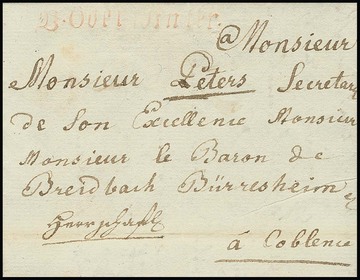 B. Ober Winter.
a Monsieur
Monsieur Peters Secretair
de Son Excellence Monsieur
Monsieur le Baron de
Breidbach Bürresheim
Herrschaftl
á Coblence